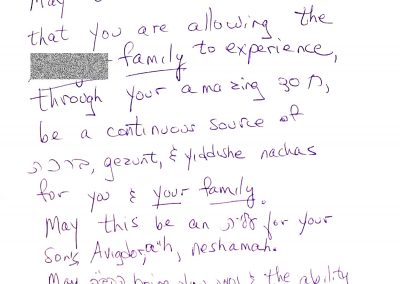 May
that you are allowing the
family to experience,
through your amazing חסד,
be a continuous source of
ברכה, gezunt, & yiddishe nachas
for you & your family.
May this be an עליה for your
son's Avigdor, a"h, neshamah.
May הקב"ה bring you & the ability